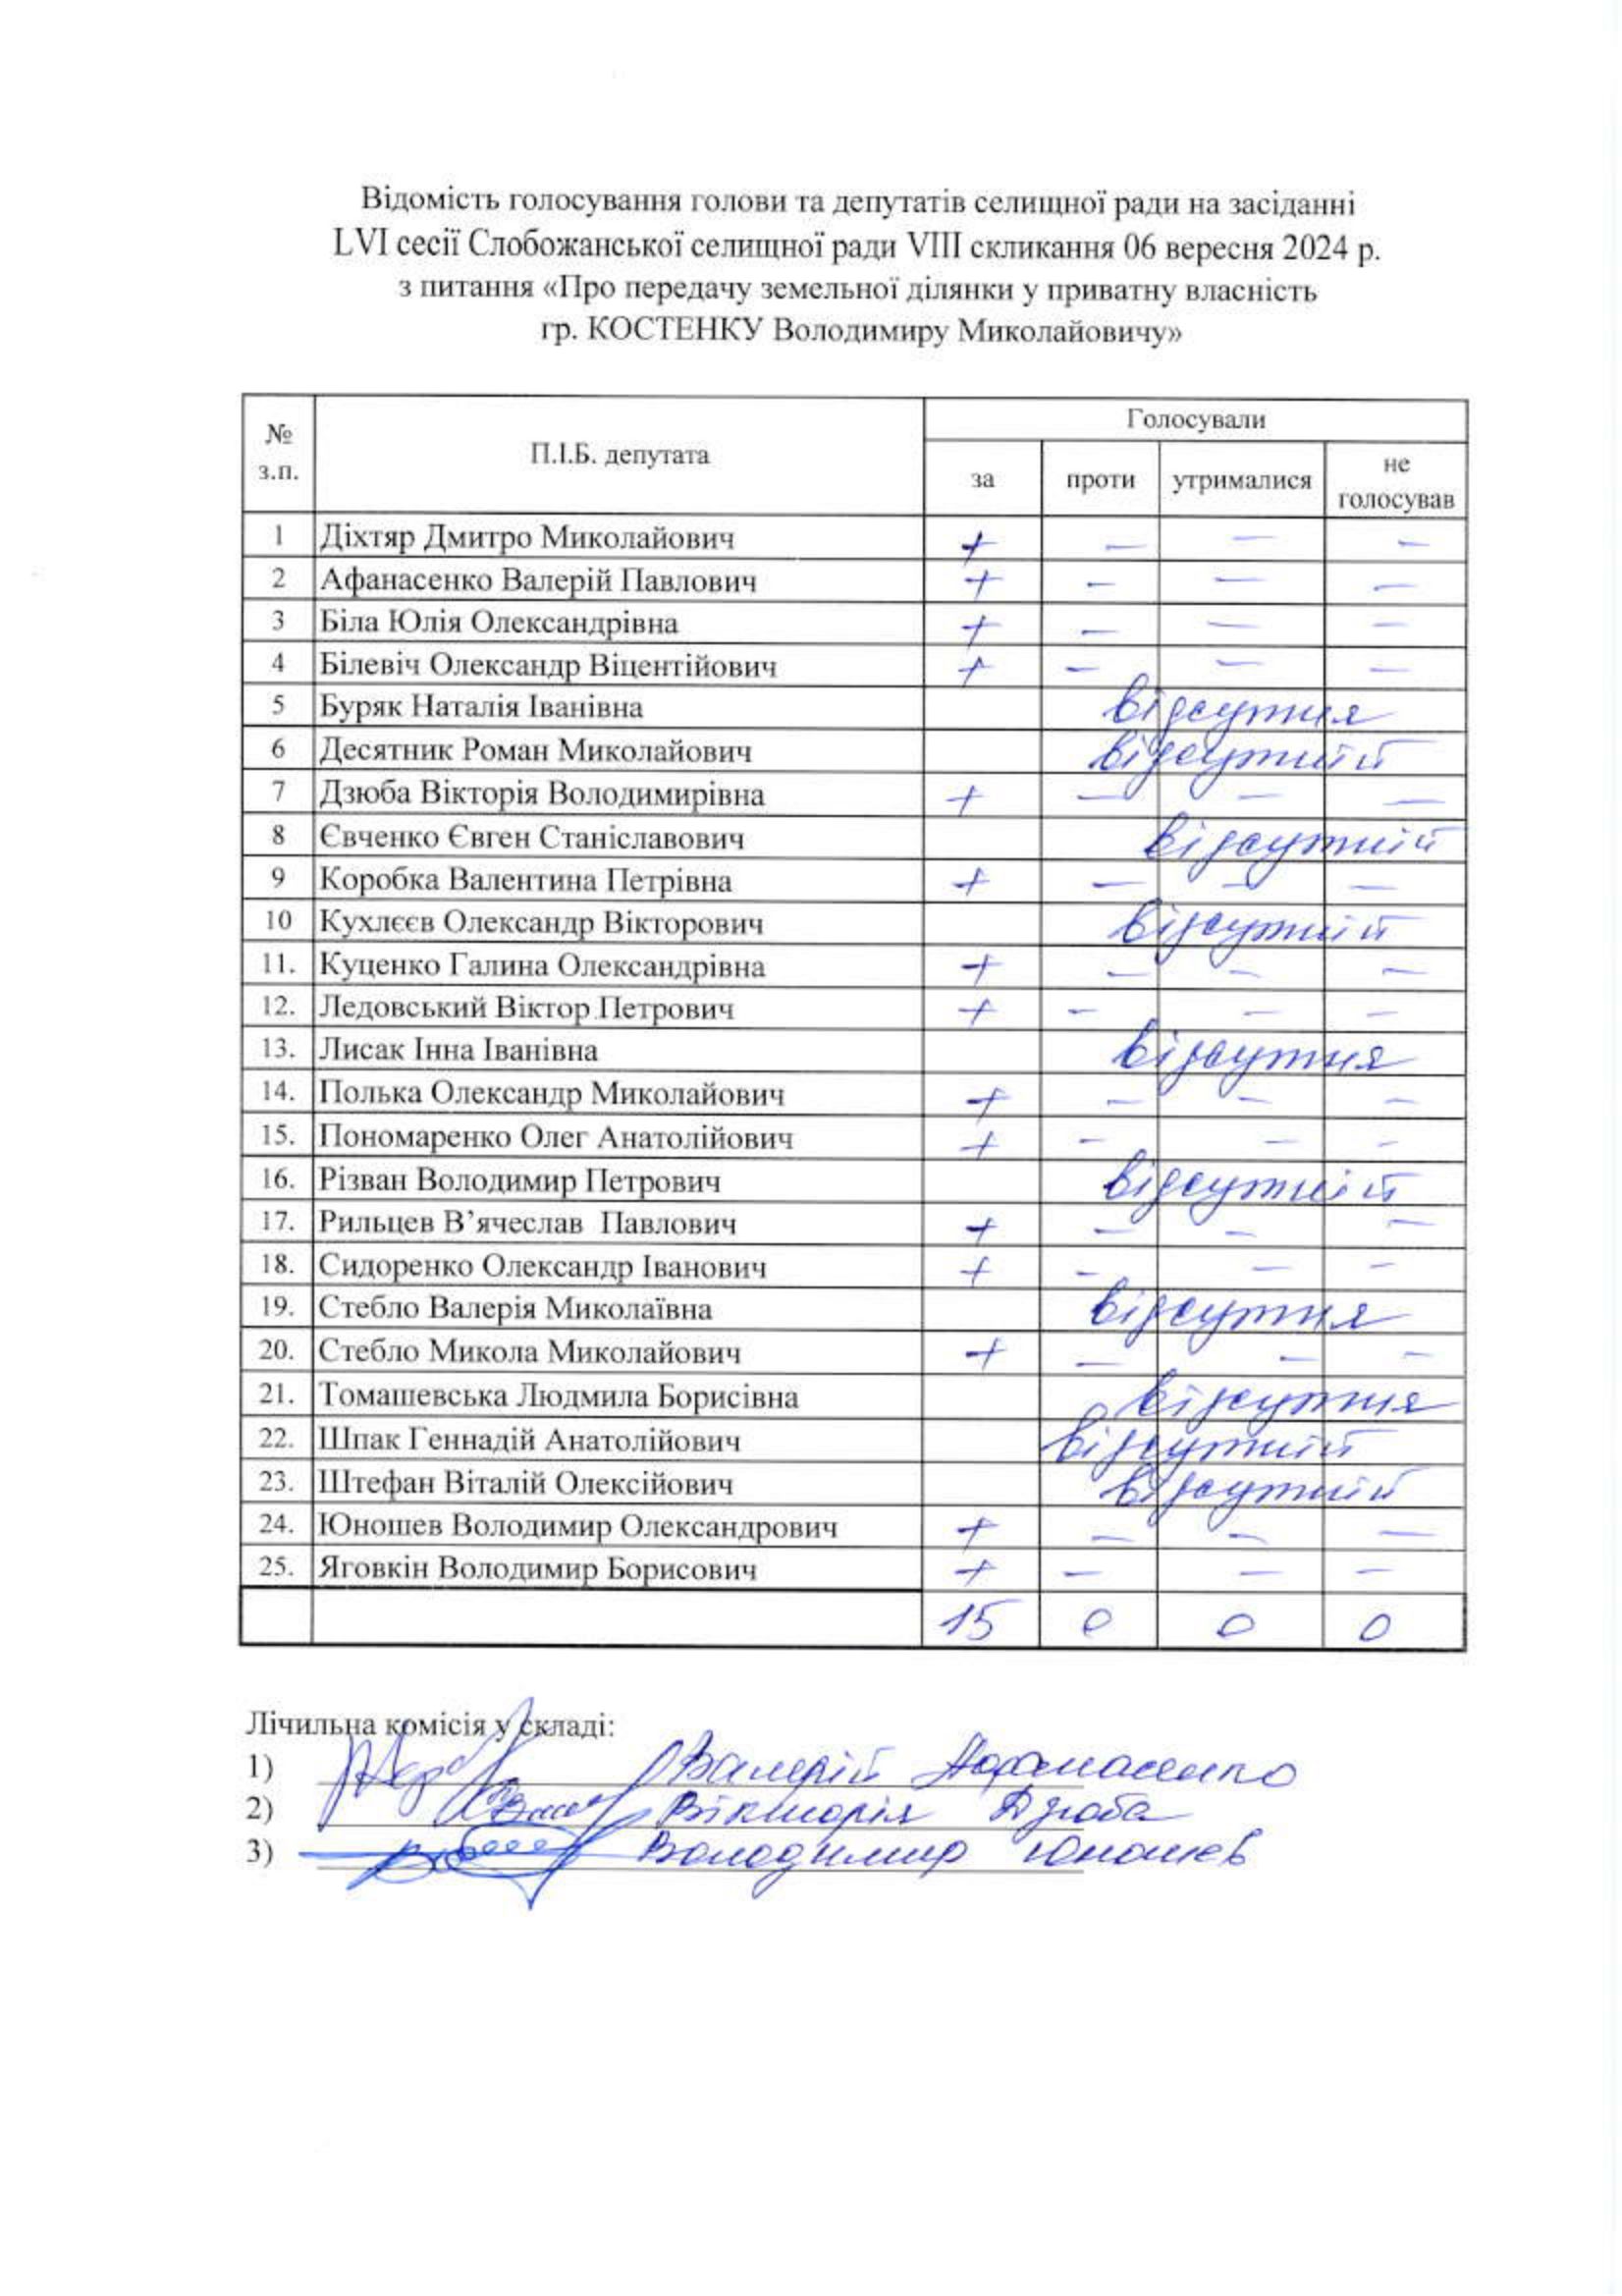 Відомість голосування голови та депутатів селищної ради на засіданні
LVI сесії Слобожанської селищної ради VIII скликання 06 вересня 2024 р.
з питання «Про передачу земельної ділянки у приватну власність
гр. КОСТЕНКУ Володимиру Миколайовичу»
№ з.п. П.І.Б. депутата Голосували
за проти утрималися не голосував
1 Діхтяр Дмитро Миколайович + – – –
2 Афанасенко Валерій Павлович + – – –
3 Біла Юлія Олександрівна + – – –
4 Білевіч Олександр Віцентійович + – – –
5 Буряк Наталія Іванівна відсутня
6 Десятник Роман Миколайович відсутній
7 Дзюба Вікторія Володимирівна + – – –
8 Євченко Євген Станіславович відсутній
9 Коробка Валентина Петрівна + – – –
10 Кухлєєв Олександр Вікторович відсутній
11. Куценко Галина Олександрівна + – – –
12. Ледовський Віктор Петрович + – – –
13. Лисак Інна Іванівна відсутня
14. Полька Олександр Миколайович + – – –
15. Пономаренко Олег Анатолійович + – – –
16. Різван Володимир Петрович відсутній
17. Рильцев В’ячеслав Павлович + – – –
18. Сидоренко Олександр Іванович + – – –
19. Стебло Валерія Миколаївна відсутня
20. Стебло Микола Миколайович + – – –
21. Томашевська Людмила Борисівна відсутня
22. Шпак Геннадій Анатолійович відсутній
23. Штефан Віталій Олексійович відсутній
24. Юношев Володимир Олександрович + – – –
25. Яговкін Володимир Борисович + – – –
15 0 0 0
Лічильна комісія у складі:
1) Валерій Афанасенко
2) Вікторія Дзюба
3) Володимир Юношев